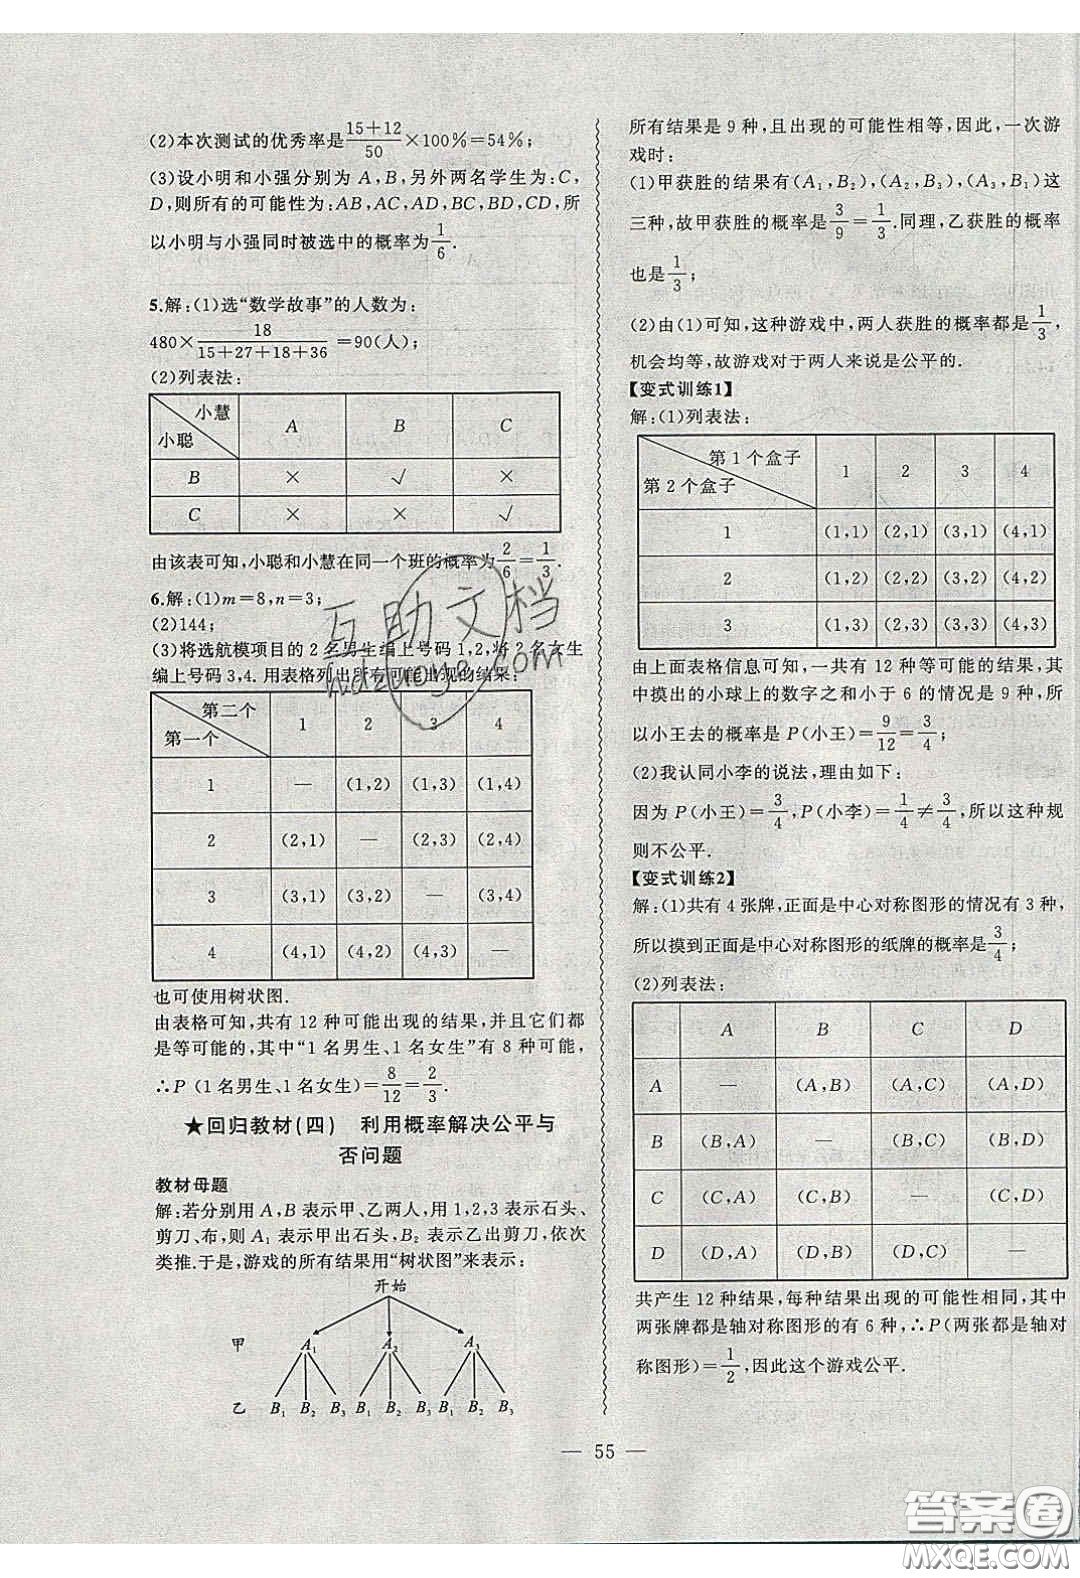 (2)本次测试的优秀率是(15+12)/50×100%=54%;
(3)设小明和小强分别为 A,B,另外两名学生为:C,
D,则所有的可能性为:AB,AC,AD,BC,BD,CD,所
以小明与小强同时被选中的概率为1/6.
5.解:(1)选“数学故事”的人数为:
480×18/(15+27+18+36)=90(人);
(2)列表法:
小慧 A B C
小聪
B × √ ×
C × × √
由该表可知,小聪和小慧在同一个班的概率为2/6=1/3.
6.解:(1)m=8,n=3;
(2)144;
(3)将选航模项目的 2 名男生编上号码 1,2,将 2 名女生
编上号码 3,4. 用表格列出所有可能出现的结果:
第二个 1 2 3 4
第一个
1 — (1,2) (1,3) (1,4)
2 (2,1) — (2,3) (2,4)
3 (3,1) (3,2) — (3,4)
4 (4,1) (4,2) (4,3) —
也可使用树状图.
由表格可知,共有 12 种可能出现的结果,并且它们都
是等可能的,其中“1 名男生、1 名女生”有 8 种可能,
∴P (1 名男生、1 名女生)=8/12=2/3.
★回归教材(四) 利用概率解决公平与
否问题
教材母题
解:若分别用 A,B 表示甲、乙两人,用 1,2,3 表示石头、
剪刀、布,则 A₁ 表示甲出石头,B₂ 表示乙出剪刀,依次
类推.于是,游戏的所有结果用“树状图”来表示:
开始
甲 A₁ A₂ A₃
乙 B₁ B₂ B₃ B₁ B₂ B₃ B₁ B₂ B₃
所有结果是 9 种,且出现的可能性相等,因此,一次游
戏时:
(1)甲获胜的结果有(A₁,B₂),(A₂,B₃),(A₃,B₁)这
三种,故甲获胜的概率是3/9=1/3.同理,乙获胜的概率
也是1/3;
(2)由(1)可知,这种游戏中,两人获胜的概率都是1/3,
机会均等,故游戏对于两人来说是公平的.
【变式训练1】
解:(1)列表法:
第 1 个盒子 1 2 3 4
第 2 个盒子
1 (1,1) (2,1) (3,1) (4,1)
2 (1,2) (2,2) (3,2) (4,2)
3 (1,3) (2,3) (3,3) (4,3)
由上面表格信息可知,一共有 12 种等可能的结果,其
中摸出的小球上的数字之和小于 6 的情况是 9 种,所
以小王去的概率是 P(小王)=9/12=3/4;
(2)我认同小李的说法,理由如下:
因为 P(小王)=3/4,P(小李)=1/4≠3/4,所以这种规
则不公平.
【变式训练2】
解:(1)共有 4 张牌,正面是中心对称图形的情况有 3 种,
所以摸到正面是中心对称图形的纸牌的概率是3/4;
(2)列表法:
A B C D
A — (A,B) (A,C) (A,D)
B (B,A) — (B,C) (B,D)
C (C,A) (C,B) — (C,D)
D (D,A) (D,B) (D,C) —
共产生 12 种结果,每种结果出现的可能性相同,其中
两张牌都是轴对称图形的有 6 种,∴P(两张都是轴对
称图形)=1/2,因此这个游戏公平.
— 55 —
互助文档
hdzuoye.com
答案圈
MXQE.COM